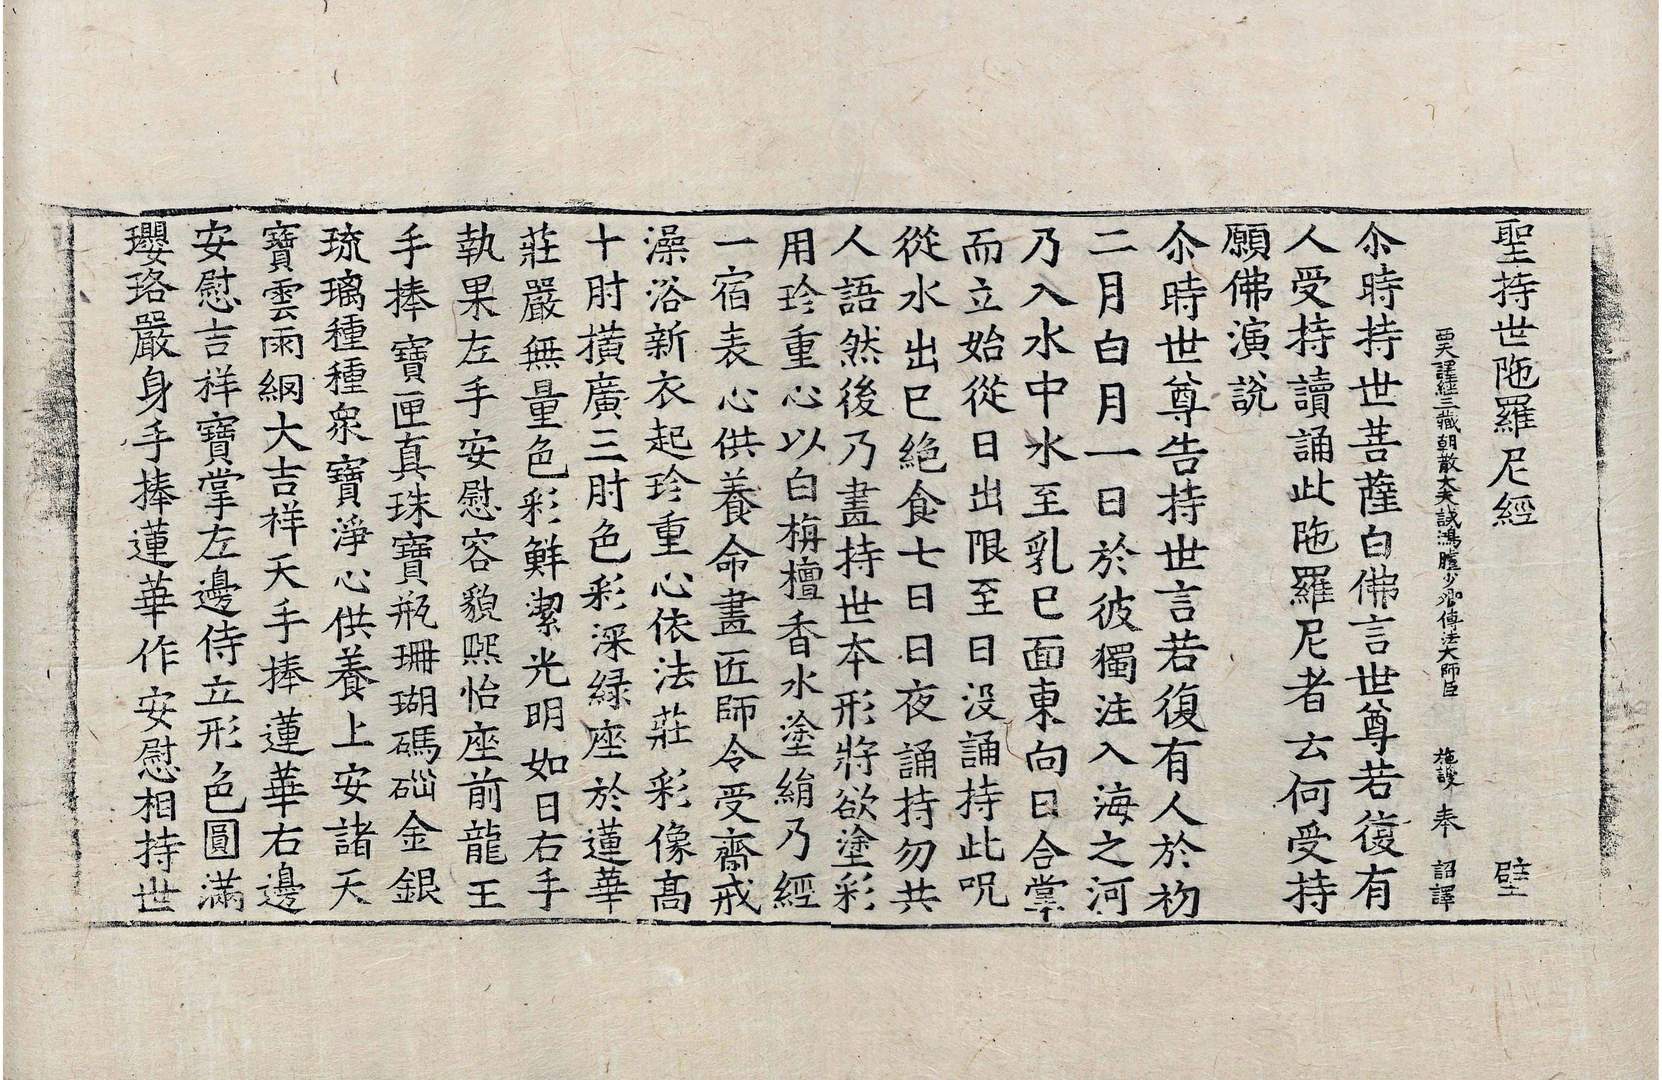 聖持世陁羅尼經 壁
西天譯經三藏朝散大夫試鴻臚少卿傳法大師臣 施護 奉 詔譯
尒時持世菩薩白佛言世尊若復有
人受持讀誦此陁羅尼者云何受持
願佛演說
尒時世尊告持世言若復有人於初
二月白月一日於彼獨注入海之河
乃入水中水至乳巳面東向日合掌
而立始從日出限至日沒誦持此呪
從水出巳絕食七日日夜誦持勿共
人語然後乃畫持世本形將欲塗彩
用珍重心以白栴檀香水塗絹乃經
一宿表心供養命畫匠師令受齋戒
澡浴新衣起珍重心依法莊彩像高
十肘橫廣三肘色彩深綠座於蓮華
莊嚴無量色彩鮮潔光明如日右手
執果左手安慰容貌熙怡座前龍王
手捧寶匣真珠寶瓶珊瑚碼碯金銀
琉璃種種衆寶淨心供養上安諸天
寶雲雨網大吉祥天手捧蓮華右邊
安慰吉祥寶掌左邊侍立形色圓滿
瓔珞嚴身手捧蓮華作安慰相持世